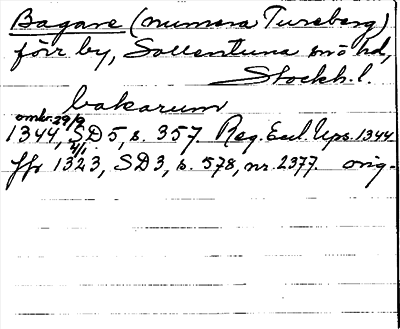 Bagare (numera Tureberg)
förr by, Sollentuna snö hd,
Stockh. l.
bakarum
omkr. 29/9
1344, SD 5, s. 357. Reg. Eccl. Ups. 1344
ffr 4/1 1323, SD 3, s. 578, nr. 2377. orig.